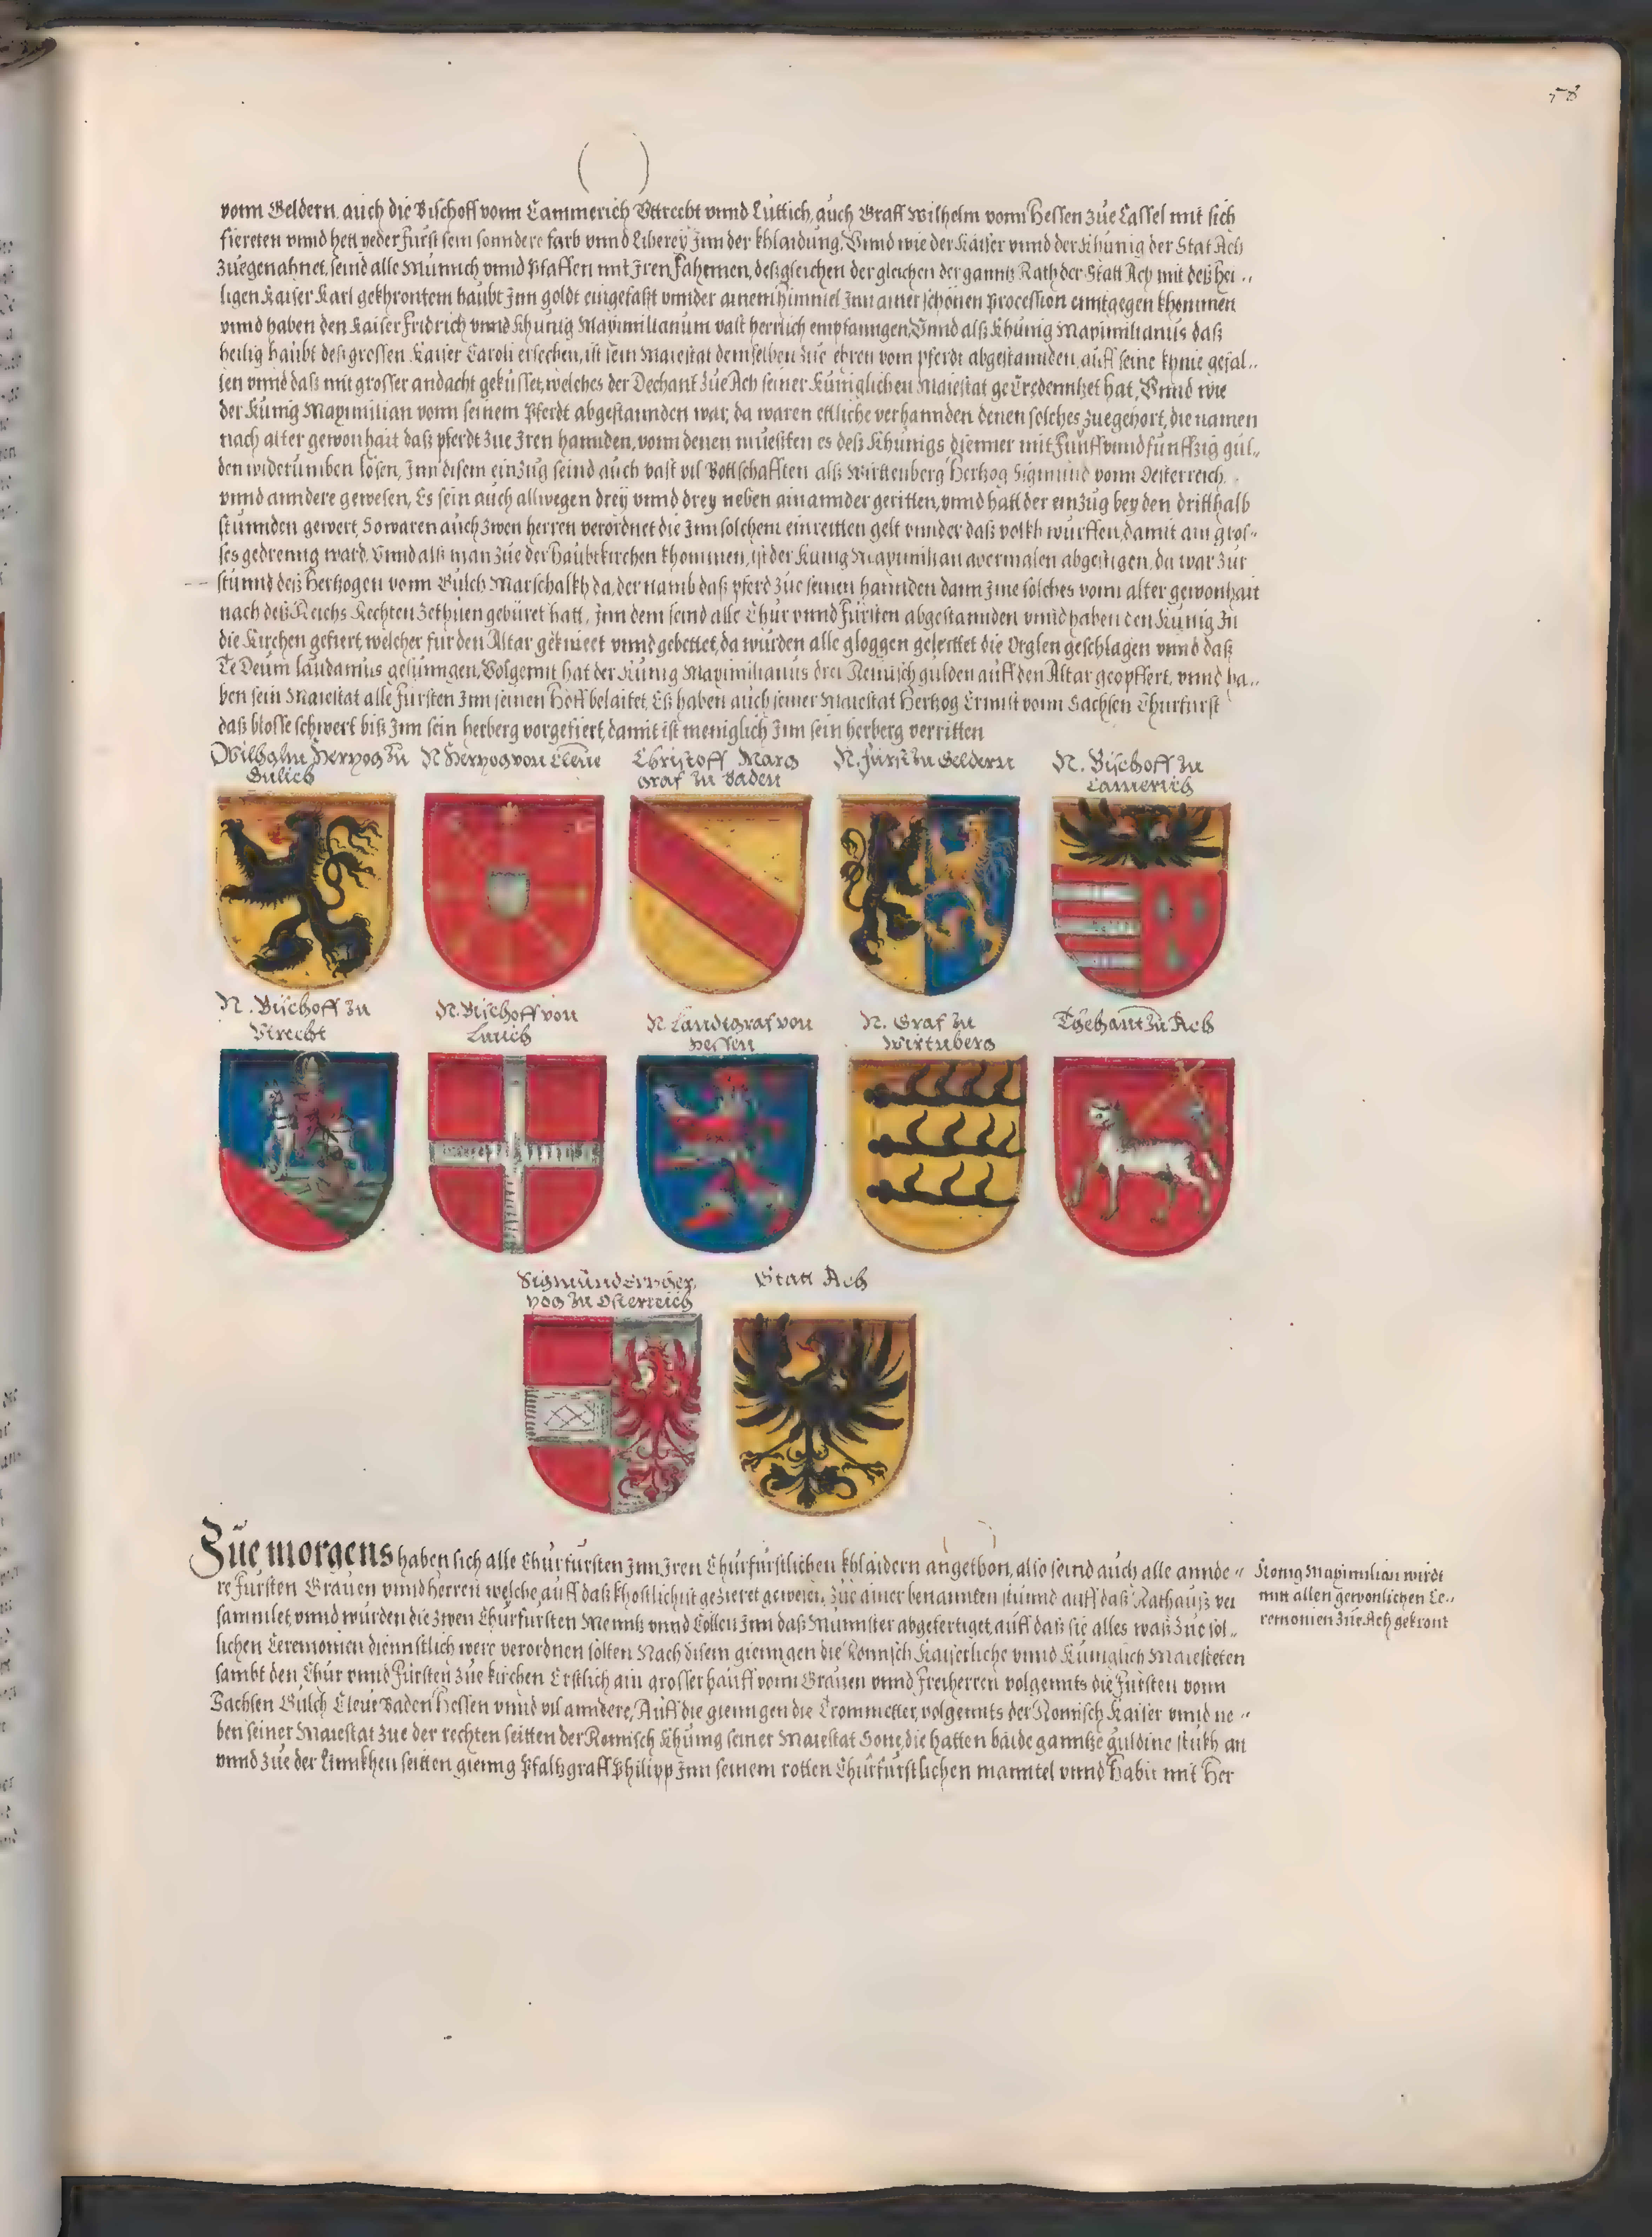 58
vonn Geldern, auch die Bischoff vonn Cammerich Vttrecht vnnd Lüttich, auch Graff Wilhelm vonn Hessen züe Cassel mit sich
fiereten vnnd hett yeder Fürst sein sonndere farb vnnd Liberey Inn der khlaidung, Vnnd wie der Kaiser vnnd der Khünig der Stat Ach
züegenahnet, seind alle Münnich vnnd Pfaffen mit Iren Fahennen, deßgleichen der gleichen der ganntz Rath der Statt Ach mit deß hei„
ligen Kaiser Karl gekhrontem haubt Inn goldt eingefaßt vnnder ainem himmel Inn ainer schönen Procession enntgegen khommen
vnnd haben den Kaiser Fridrich vnnd Khünig Maximilianum vast herrlich empfanngen, Vnnd alß Khünig Maximilianus daß
heilig haubt deß grossen Kaiser Caroli ersechen, ist sein Maiestat demselben züe ehren vom pferdt abgestannden, auff seine knnie gefal„
len vnnd daß mit grosser andacht geküsset, welches der Dechant züe Ach seiner Küniglichen Maiestat geCredenntzet hat, Vnnd wie
der Künig Maximilian vonn seinem Pferdt abgestannden war, da waren ettliche verhannden denen solches züegehört, die namen
nach alter gewonhait daß pferdt züe Iren hannden, vonn denen müesßten es deß Khünigs Djenner mit Fünff vnnd fünffzig gül„
den widerumben lösen, Inn disem einzug seind auch vast vil Bottschafften alß Wirttenberg Hertzog Sigmund vonn Oesterreich,
vnnd anndere gewesen, Es sein auch allwegen drey vnnd drey neben ainannder geritten, vnnd hatt der einzug bey den dritthalb
stunnden gewert, So waren auch zwen herren verordnet die Inn solchem einreitten gelt vnnder daß volkh wurffen, damit ain gros„
ses gedrenng ward, Vnnd alß man züe der Haubtkirchen khommen, ist der Künig Maximilian abermalen abgestigen, da war zur
stunnd deß Hertzogen vonn Gülch Marschalkh da, der namb daß pferd züe seinen hannden dann Ime solches vonn alter gewonhait
nach deß Reichs Rechten zethüen gebüret hatt, Inn dem seind alle Chur vnnd Fürsten abgestannden vnnd haben den Künig In
die Kirchen gefiert, welcher für den Altar gekniet vnnd gebettet, da wurden alle gloggen geleüttet die Orglen geschlagen vnnd daß
Te Deum laudamus gesunngen, Volgennt hat der Künig Maximilianus drei Reinisch gulden auff den Altar geopffert, vnnd ha„
ben sein Maiestat alle Fürsten Inn seinen Hoff belaitet, Eß haben auch seiner Maiestat Hertzog Ernnst vonn Sachsen Churfürst
daß blosse schwert biß Inn sein herberg vorgefiert, damit ist meniglich Inn sein herberg verritten
Wilhalm Herzog zu
Gulich
N Herzog von Cleue
Christoff Marg
graf zu Baden
N. Fürst zu Geldern
N. Bischoff zu
Camerich
N. Bischoff zu
Vtrecht
N. Bischoff von
Lutich
N. Landtgraf von
Hessen
N. Graf zu
Wirtnberg
Techant zu Ach
Sigmünd Erzher
zog zu Osterreich
Statt Ach
Züe morgens haben sich alle Churfürsten Inn Iren Churfürstlichen khlaidern angethon, also seind auch alle annde„
re Fürsten Grauen vnnd herren welche auff daß khostlichist gezieret gewesen, züe ainer benannten stunnd auff daß Rathauß ver
samlet, vnnd wurden die zwen Churfürsten Menntz vnnd Cöllen Inn daß Münnster abgefertiget, auff daß sie alles waß züe sol„
lichen Ceremonien diennstlich were verordnen solten Nach disem gienngen die Römisch Kaiserliche vnnd Küniglich Maiesteten
sambt den Chur vnnd Fürsten züe kirchen Erstlich ain grosser hauff vonn Grauen vnnd Freiherren volgennts die Fürsten vonn
Sachsen Gülch Cleue Baden Hessen vnnd vil anndere, Auff die gienngen die Trommetter, volgennts der Römisch Kaiser vnnd ne„
ben seiner Maiestat züe der rechten seitten der Römisch Khünig seiner Maiestat Sone, die hatten baide ganntze guldine stukh an
vnnd züe der Linnkhen seitten gienng Pfaltzgraff Philipp Inn seinem rotten Churfürstlichen manntel vnnd Habit mit Her
Konig Maximilian wirdt
mit allen gewonlichen Ce„
remonien züe Ach gekrönt